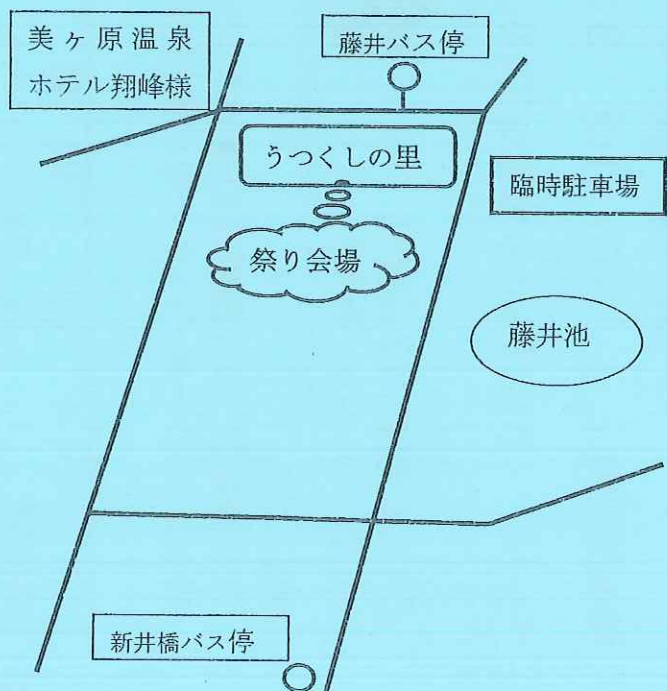 美ヶ原温泉
ホテル翔峰様
藤井バス停
うつくしの里
臨時駐車場
祭り会場
藤井池
新井橋バス停